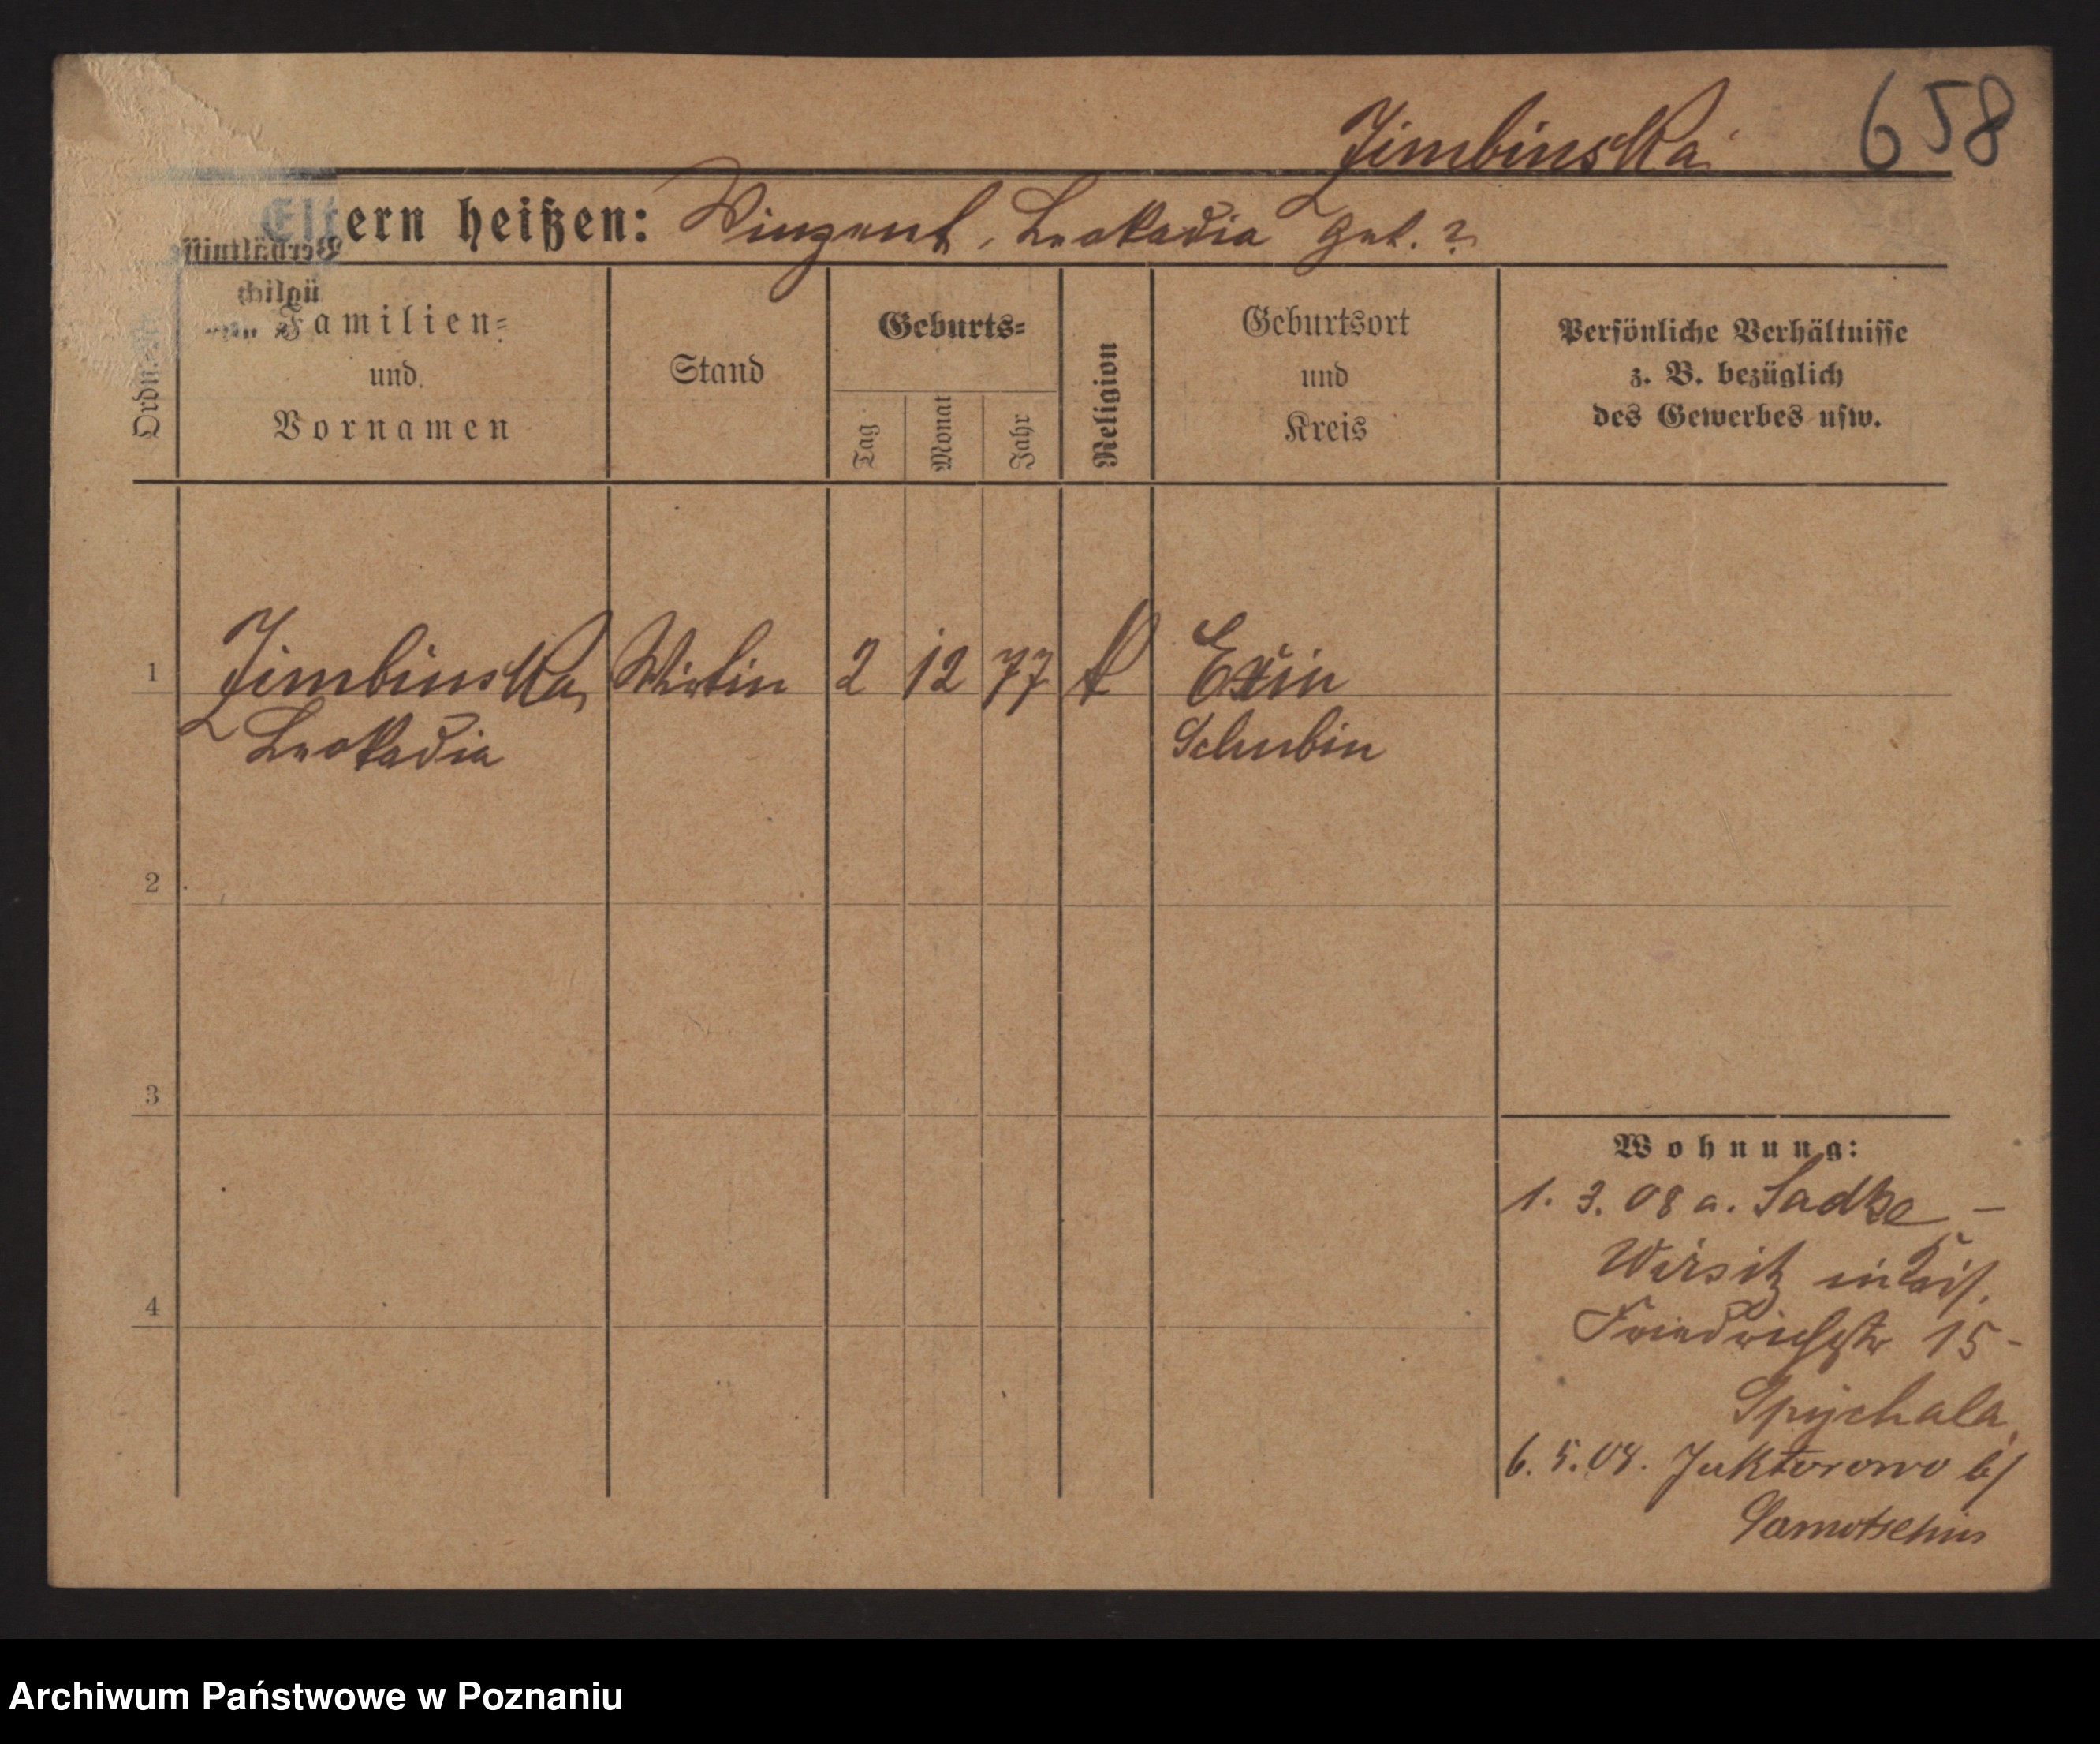 Zimbinska 658
Eltern heißen: Vinzent, Leokadia geb. ?
Ordn.-Nr.
Familien-
und
Vornamen
Stand
Geburts-
Tag
Monat
Jahr
Religion
Geburtsort
und
Kreis
Persönliche Verhältnisse
z. B. bezüglich
des Gewerbes usw.
1 Zimbinska, Wirtin 2 12 77 k Exin
Leokadia Schubin
2
3
4
Wohnung:
1. 3. 08 a. Sadke -
Wirsitz
Friedrichstr 15 -
Spychala
6. 5. 08. Jaktorowo b/
Samotschin
Archiwum Państwowe w Poznaniu